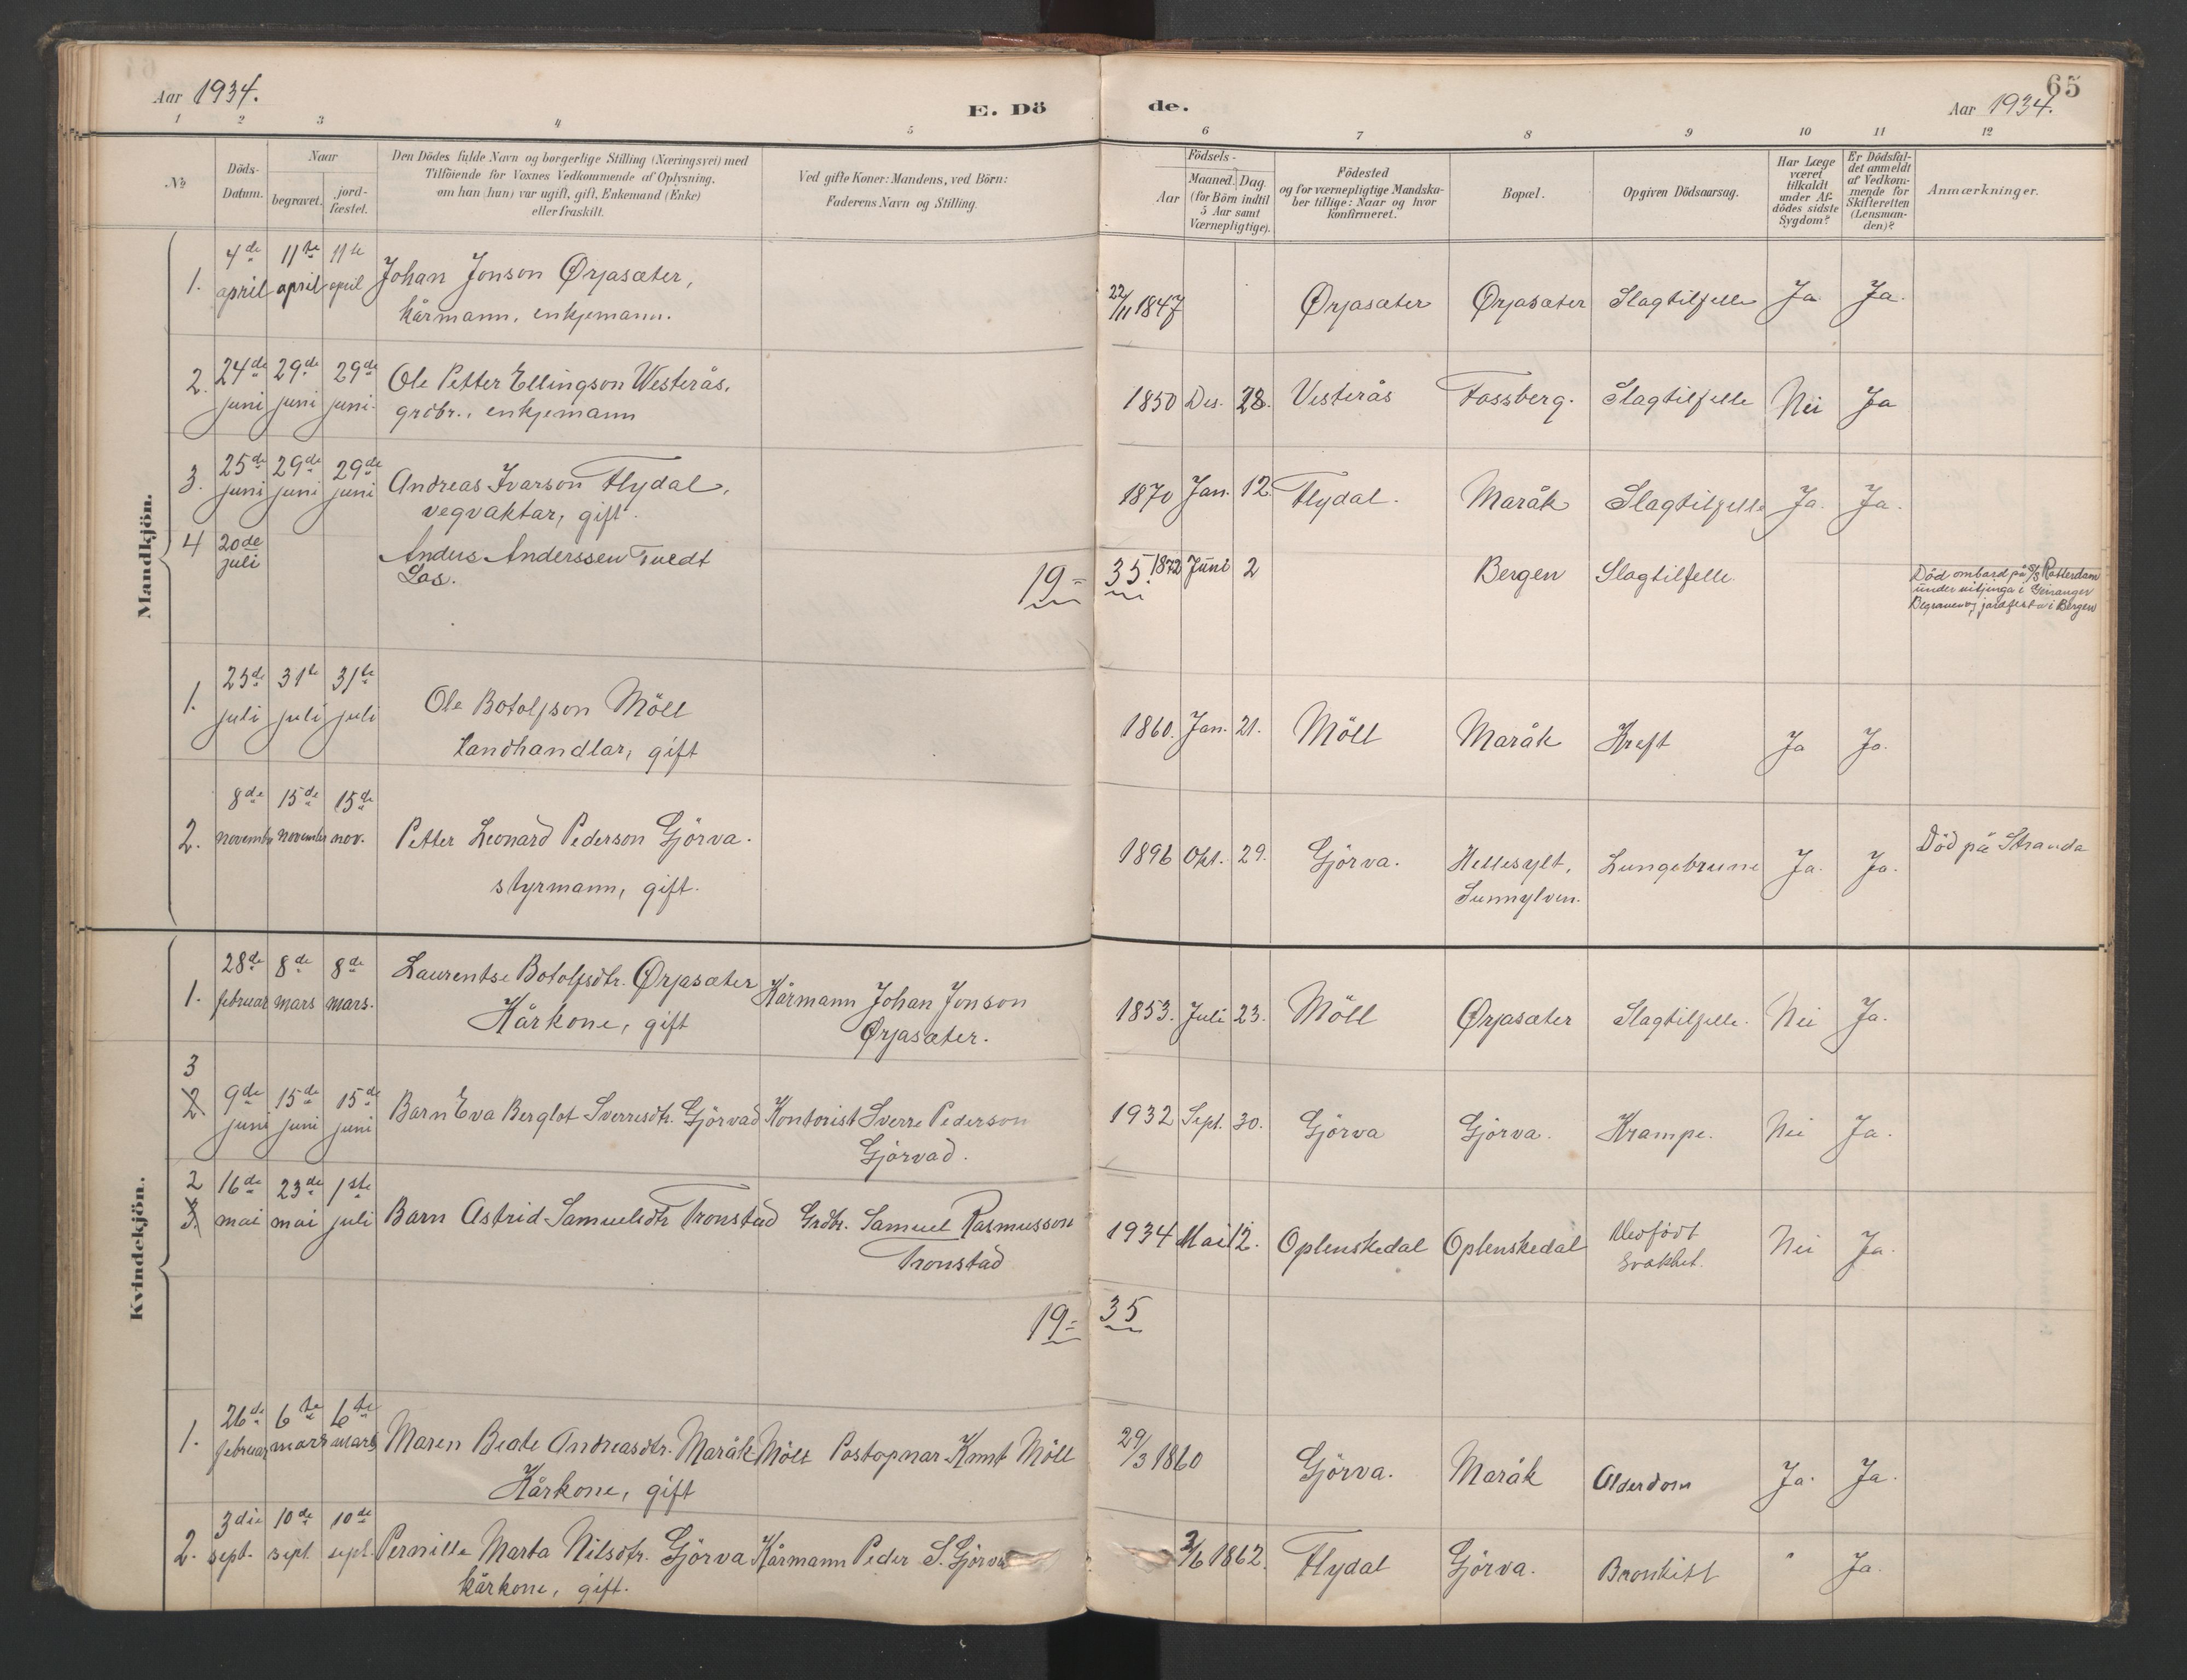 Aar 1934.
E. Dö
de.
65
Aar 1934.
1 2 3 4 5 6 7 8 9 10 11 12
No
Döds-
Datum.
Naar
begravet.
jord-
fæstet.
Den Dödes fulde Navn og borgerlige Stilling (Næringsvei) med
Tilföiende for Voxnes Vedkommende af Oplysning.
om han (hun) var ugift, gift, Enkemand (Enke)
eller fraskilt.
Ved gifte Koner: Mandens, ved Börn:
Faderens Navn og Stilling.
Födsels-
Aar
Maaned. Dag.
(for Börn indtil
5 Aar samt
Værnepligtige).
Födested
og for værnepligtige Mandska-
ber tillige: Naar og hvor
konfirmeret.
Bopæl.
Opgiven Dödsaarsag.
Har Læge
været
tilkaldt
under Af-
dödes sidste
Sygdom?
Er Dödsfal-
det anmeldt
af Vedkom-
mende for
Skifteretten
(Lensman-
den)?
Anmærkninger.
Mandkjön.
1. 4de april 11te april 11te april Johan Jonson Ørjasæter,
kårmann, enkjemann.
22/11 1847 Ørjasæter Ørjasæter Slagtilfelle Ja Ja.
2. 24de juni 29de juni 29de juni. Ole Petter Ellingson Westerås,
grdbr., enkjemann
1850 Des. 28. Vesterås Fossberg. Slagtilfelle Nei Ja
3. 25de juni 29de juni 29de juni Andreas Ivarson Flydal,
vegvaktar, gift.
1870 Jan. 12. Flydal. Maråk Slagtilfelle Ja. Ja.
4 20de juli Anders Anderssen Tvedt
Los.
1872 Juni 2 Bergen Slagtilfelle.
Död ombord på S/S Rotterdam
under vitjinga i Geiranger
Begraven og jordfesta i Bergen
19= 35.
1. 25de juli 31te juli 31te juli Ole Botolfson Möll
Landhandlar, gift
1860. Jan. 21. Möll Maråk Kreft Ja Ja.
2. 8de november 15de november 15de nov. Petter Leonard Pederson Gjörva.
styrmann, gift.
1896 Okt. 29. Gjörva. Hellesylt,
Sunnylven.
Lungebrune Ja. Ja. Död på Stranda
Kvindekjön.
1. 28de februar 8de mars 8de mars. Laurentse Botolfsdtr. Ørjasæter
Kårkone, gift
Kårmann Johan Jonson
Ørjasæter.
1853. Juli 23. Möll Ørjasæter Slagtilfelle. Nei Ja.
3
2 9de juni 15de juni 15de juni Barn Eva Berglot Sverresdtr. Gjörvad Kontorist Sverre Pederson
Gjörvad.
1932 Sept. 30. Gjörva Gjörva. Krampe. Nei Ja.
2
3. 16de mai 23de mai 1ste juli Barn Astrid Samuelsdtr Tronstad Grdbr. Samuel Rasmusson
Tronstad
1934 Mai 12. Oplenskedal Oplenskedal Medfödt
svakhet.
Nei Ja.
19= 35
1. 26de februar 6te mars 6te mars Maren Beate Andreasdtr. Maråk-Möll Postopnar Knut Möll
Kårkone, gift
29/3 1860 Gjörva. Maråk Alderdom Ja. Ja.
2. 3die sept. 10de sept. 10de sept. Pernille Marta Nilsdtr. Gjörva Kårmann Peder S. Gjörva
kårkone, gift.
3/6 1862. Flydal Gjörva. Bronkitt " Ja.